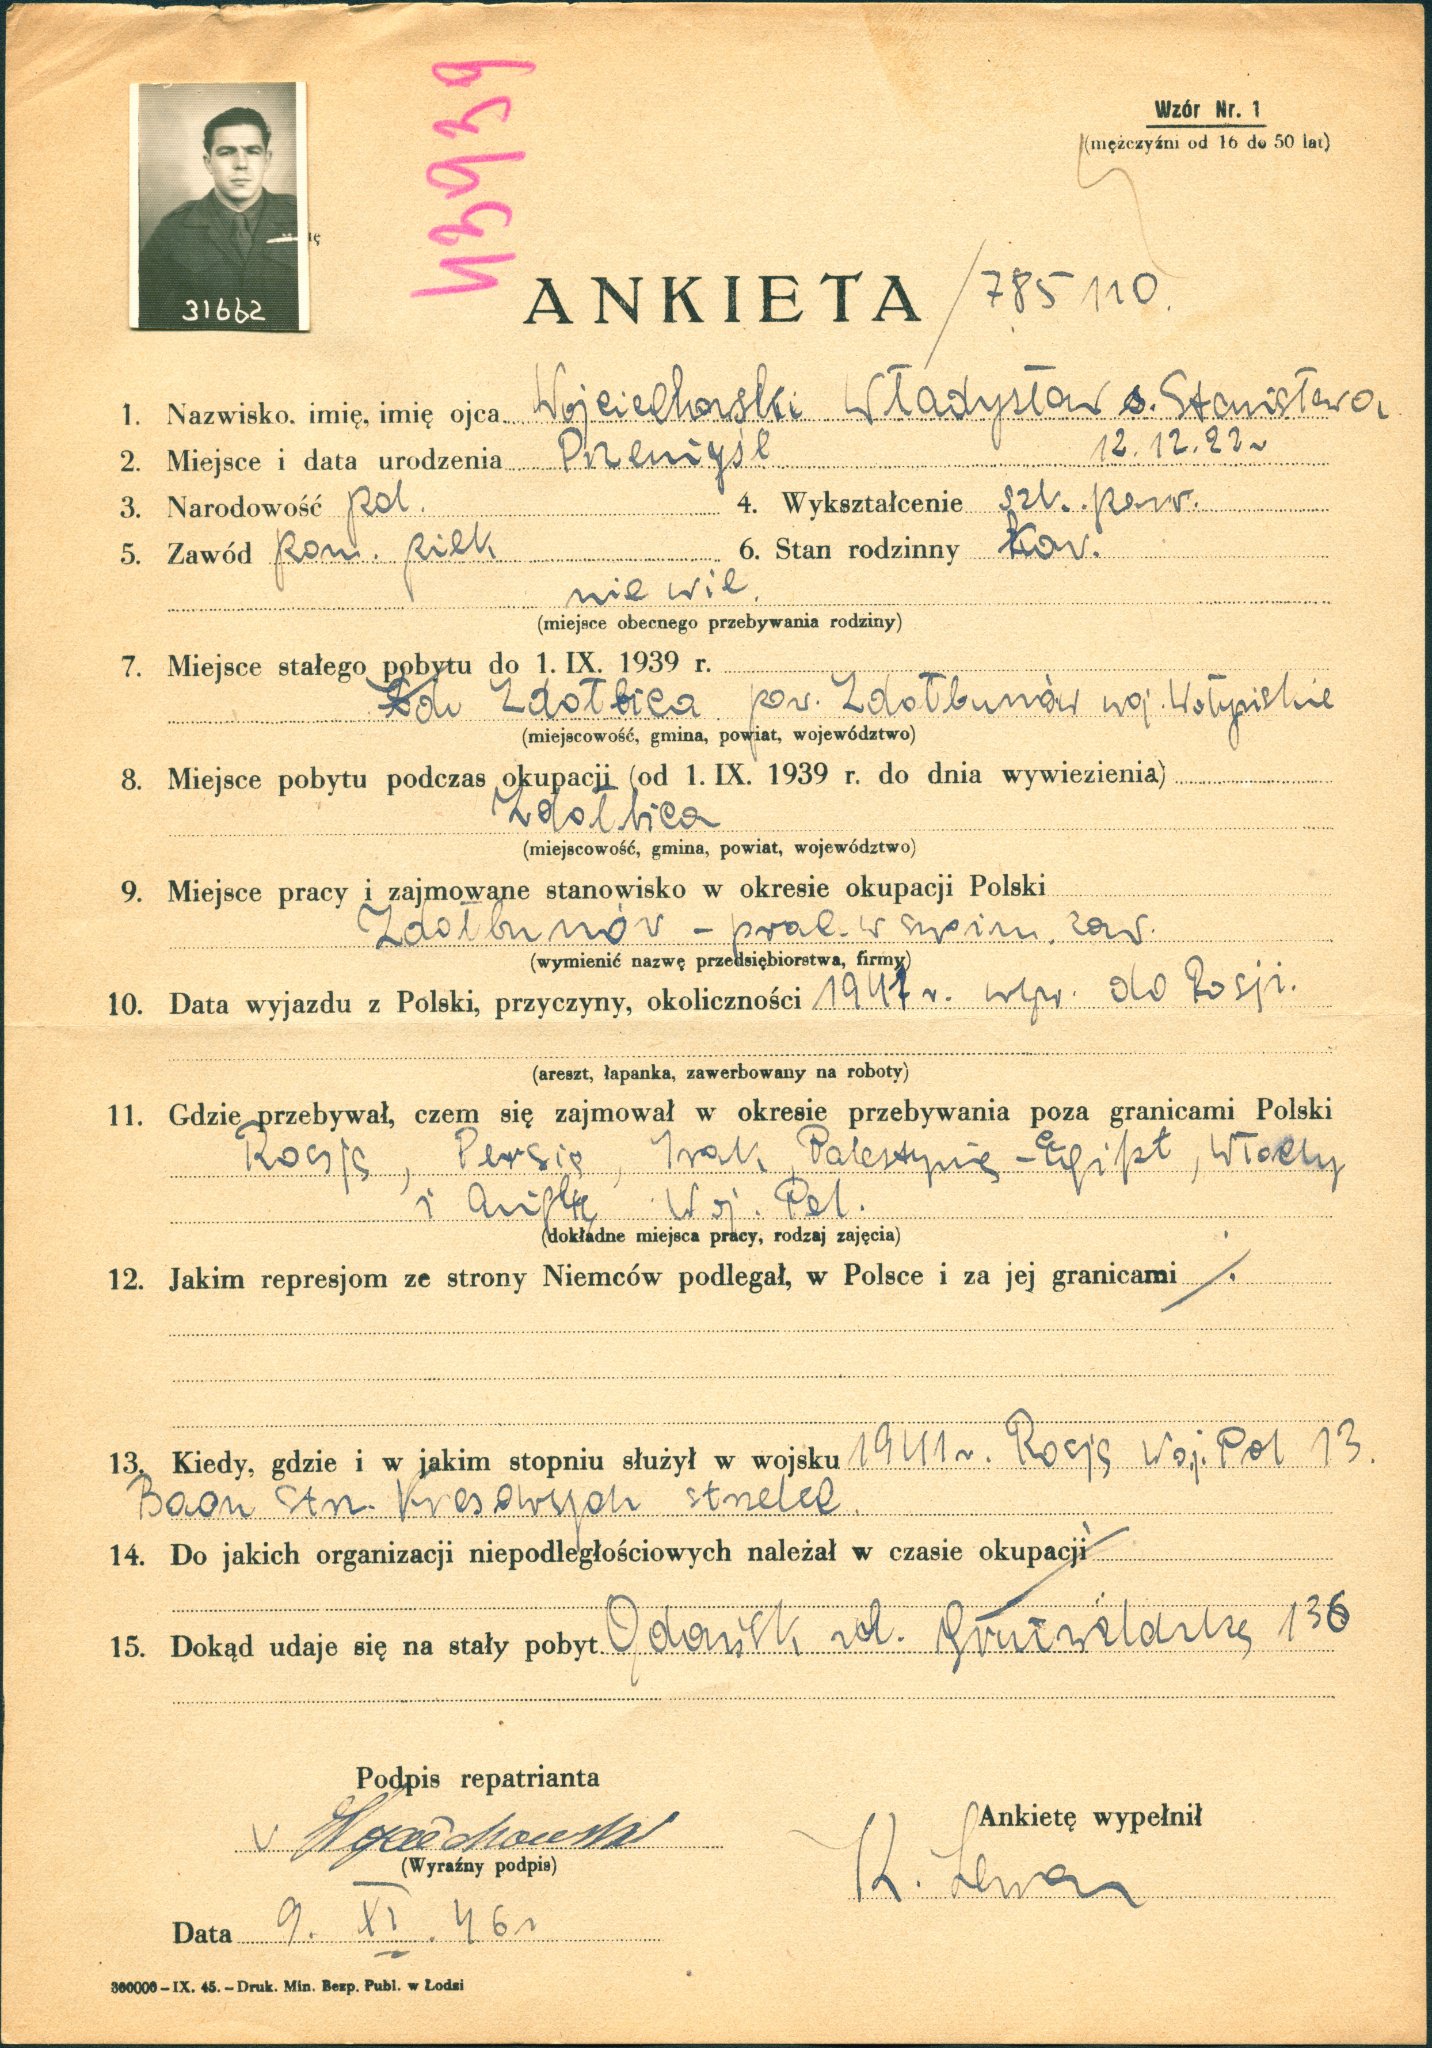 Wzór Nr. 1
(mężczyźni od 16 do 50 lat)
31662
ANKIETA 785110.
1. Nazwisko, imię, imię ojca Wojciechowski Władysław s. Stanisława
2. Miejsce i data urodzenia Przemyśl 12.12.22 r
3. Narodowość pol. 4. Wykształcenie szk. pow.
5. Zawód pom. piek 6. Stan rodzinny kaw.
nie wie.
(miejsce obecnego przebywania rodziny)
7. Miejsce stałego pobytu do 1. IX. 1939 r.
Zdołbica pow. Zdołbunów woj. Wołyńskie
(miejscowość, gmina, powiat, województwo)
8. Miejsce pobytu podczas okupacji (od 1. IX. 1939 r. do dnia wywiezienia)
Zdołbica
(miejscowość, gmina, powiat, województwo)
9. Miejsce pracy i zajmowane stanowisko w okresie okupacji Polski
Zdołbunów - prac. w swoim. zaw.
(wymienić nazwę przedsiębiorstwa, firmy)
10. Data wyjazdu z Polski, przyczyny, okoliczności 1941 r. do Rosji.
(areszt, łapanka, zawerbowany na roboty)
11. Gdzie przebywał, czem się zajmował w okresie przebywania poza granicami Polski
Rosję, Persię, Irak, Palestynię - Egipt, Włochy
i Anglię Woj. Pol.
(dokładne miejsca pracy, rodzaj zajęcia)
12. Jakim represjom ze strony Niemców podlegał, w Polsce i za jej granicami
13. Kiedy, gdzie i w jakim stopniu służył w wojsku 1941 r. Rosję Woj. Pol 13.
Baon Str. Kresowych strzelec.
14. Do jakich organizacji niepodległościowych należał w czasie okupacji
15. Dokąd udaje się na stały pobyt Gdańsk ul. Grunwaldzkę 136
Podpis repatrianta
Wojciechowski
(Wyraźny podpis)
Ankietę wypełnił
K.
Data 9. XI. 46 r
300000 - IX. 45. - Druk. Min. Bezp. Publ. w Łodzi